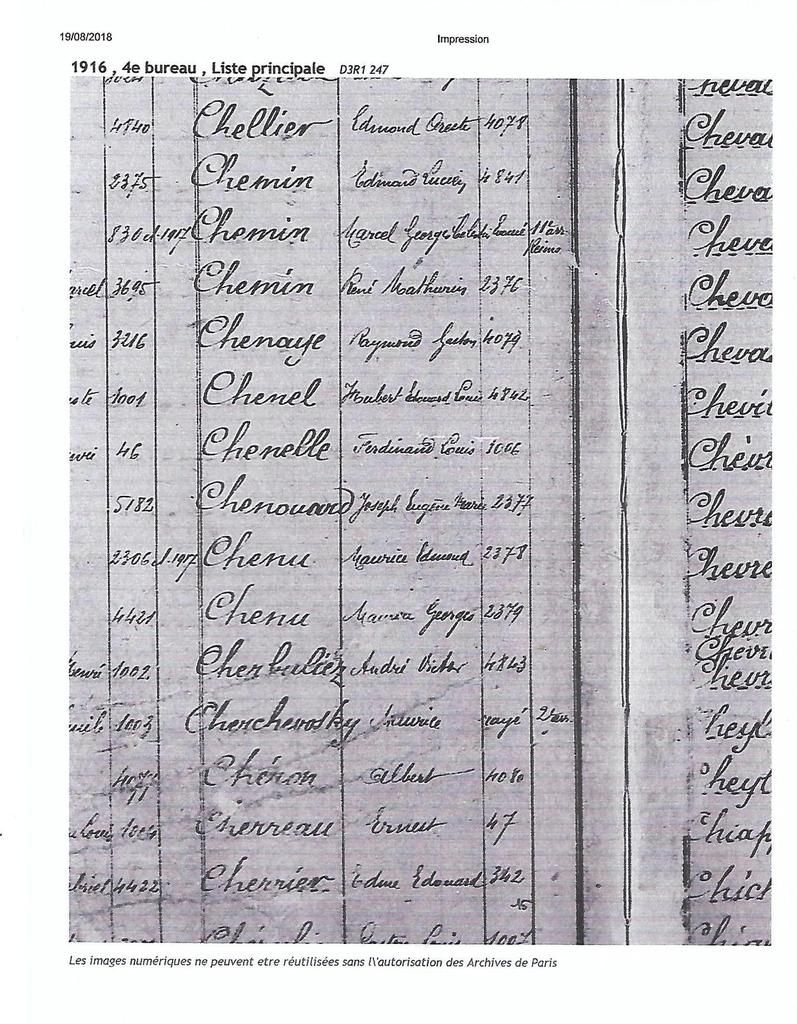 19/08/2018 Impression
1916 , 4e bureau , Liste principale D3R1 247
1024 heval
4840 Chellier Edmond Oreste 4078 Cheval
2375 Chemin Edmond Lucien 4841 Cheva
830 cl. 1917 Chemin Marcel Georges 11e arr Reims Cheva
arcel 3695 Chemin René Mathurin 2376 Cheva
uis 3216 Chenaye Raymond Gaston 4079 Cheva
ste 1001 Chenel Hubert Edouard Louis 4842 Chevil
46 Chenelle Ferdinand Louis 1006 Chèvr
5182 Chenouard Joseph Eugène Marie 2377 Chevre
2306 cl. 1917 Chenu Maurice Edmond 2378 hevre
4421 Chenu Maurice Georges 2379 Chevr
Chevr
Henri 1002 Cherbuliez André Victor 4843 hevr
mile 1003 Cherchevosky Maurice rayé 2e arr. heyl
Chéron Albert 4080 heyl
Louis 1004 Cherreau Ernest 47 hiap
briel 4422 Cherrier Edme Edouard 342 Chich
15
Gaston Louis 1007
Les images numériques ne peuvent etre réutilisées sans l\'autorisation des Archives de Paris